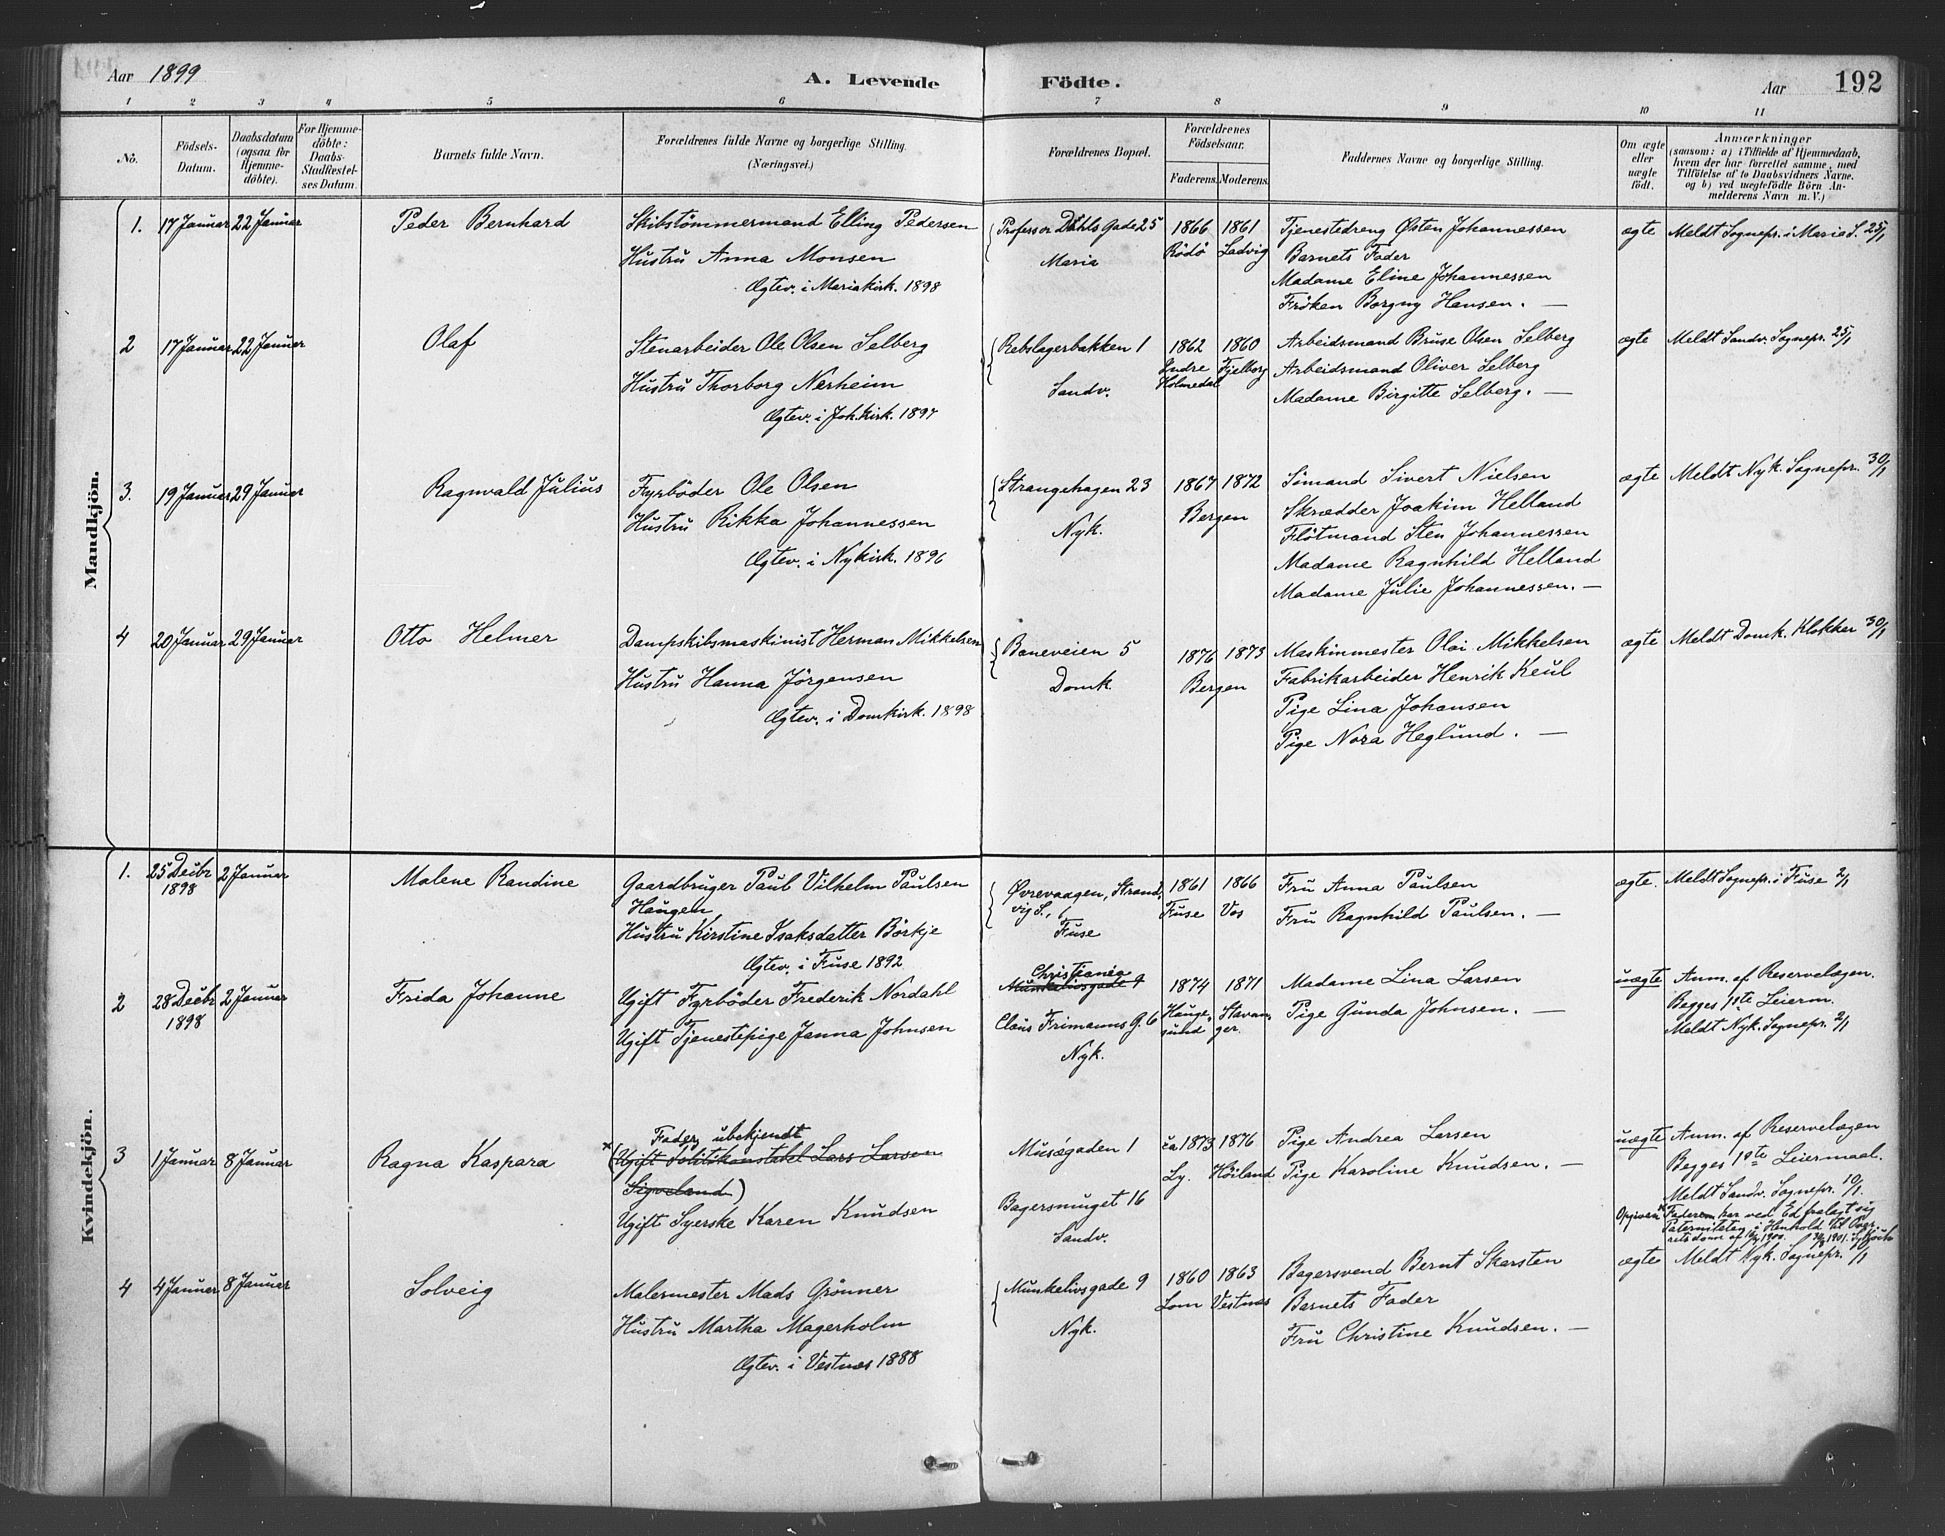 Aar 1899
A. Levende Födte.
Aar 192
1 2 3 4 5 6 7 8 9 10 11
No.
Födsels-Datum.
Daabsdatum (ogsaa for Hjemme-döbte).
For Hjemme-döbte: Daabs-Stadfestel-ses Datum.
Barnets fulde Navn.
Forældrenes fulde Navne og borgerlige Stilling. (Næringsvei.)
Forældrenes Bopæl.
Forældrenes Födselsaar.
Faderens. Moderens.
Faddernes Navne og borgerlige Stilling.
Om ægte eller uægte födt.
Anmærkninger
(saasom: a) i Tilfælde af Hjemmedaab,
hvem der har forrettet samme, med
Tilföielse af to Daabsvidners Navne.
og b) ved uægtefödte Börn An-
melderens Navn m. V.)
Mandkjön.
1. 17 Januar 22 Januar
Peder Bernhard
Skibstömmermand Elling Pedersen
Hustru Anna Monsen
Ægtev. i Mariakirk. 1898
Professor Dahls Gade 25
Maria
1866 Rödö
1861 Ladvig
Tjenestedreng Østen Johannessen
Barnets Fader
Madame Eline Johannessen
Fröken Borgny Hansen. —
ægte
Meldt Sognepr. i Maria S. 25/1
2 17 Januar 22 Januar
Olaf
Stenarbeider Ole Olsen Selberg
Hustru Thorborg Nærheim
Ægtev. i Joh. kirk. 1897
Rebslagerbakken 1
Sandv.
1862 Indre Holmedal
1860 Fjelberg
Arbeidsmand Bruse Olsen Selberg
Arbeidsmand Oliver Selberg
Madame Birgitte Selberg. —
ægte
Meldt Sandv. Sognepr. 25/1
3. 19 Januar 29 Januar
Ragnvald Julius
Fyrböder Ole Olsen
Hustru Rikka Johannessen
Ægtev. i Nykirk. 1896
Strangehagen 23
Nyk.
1867 1872
Bergen
Sömand Sivert Nielsen
Skrædder Joakim Helland
Flötmand Sten Johannessen
Madame Ragnhild Helland
Madame Julie Johannessen. —
ægte
Meldt Nyk. Sognepr. 30/1
4 20 Januar 29 Januar
Otto Helmer
Dampskibsmaskinist Herman Mikkelsen
Hustru Hanna Jörgensen
Ægtev. i Domkirk. 1898
Baneveien 5
Domk.
1876 1873
Bergen
Maskinmester Olai Mikkelsen
Fabrikarbeider Henrik Keul
Pige Lina Johansen
Pige Nora Heglund. —
ægte
Meldt Domk. Klokker 30/1
Kvindekjön.
1. 25 Decbr 1898 2 Januar
Malene Randine
Gaardbruger Paul Vilhelm Paulsen
Haugen
Hustru Kirstine Isaksdatter Börkje
Ægtev. i Fuse 1892
Øvrevaagen, Strand-
vig S.,
Fuse
1861 Fuse
1866 Vos
Fru Anna Paulsen
Fru Ragnhild Paulsen. —
ægte.
Meldt Sognepr. i Fuse 2/1
2 28 Decbr 1898 2 Januar
Frida Johanne
Ugift Fyrböder Frederik Nordahl
Ugift Tjenestepige Janna Johnsen
Christiania
Munkelivsgade 9
Claus Frimanns G. 6
Nyk.
1874 Hauge-sund
1871 Stavan-ger.
Madame Lina Larsen
Pige Gunda Johnsen. —
uægte
Anm. af Reservelægen.
Begges 1ste Leierm.
Meldt Nyk. Sognepr. 2/1
3 1 Januar 8 Januar
Ragna Kaspara
Fader ubekjendt
*(Ugift Politikonstabel Lars Larsen
Sigveland)
Ugift Syerske Karen Knudsen
Musegaden 1
Bagersmuget 16
Sandv.
ca 1873 Ly.
1876 Höiland
Pige Andrea Larsen
Pige Karoline Knudsen. —
uægte
Anm. af Reservelægen
Begges 1ste Leiermaal.
Meldt Sandv. Sognepr. 10/1.
Opgiven * Faderen har ved Ed fralagt sig
Paterniteten i Henhold til Over-
4 4 Januar 8 Januar
Solveig
Malermester Mads Grönner
Hustru Martha Magerholm
Ægtev. i Vestnæs 1888
Munkelivsgade 9
Nyk.
1860 Lom
1863 Vestnæs
Bagersvend Bernt Skarsten
Barnets Fader
Fru Christine Knudsen. —
ægte
Meldt Nyk. Sognepr. /1